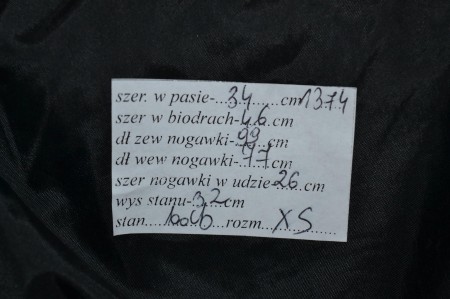 szer. w pasie-...34.........cm1374
szer w biodrach-46.cm
dł zew nogawki-99...cm
dł wew nogawki-77cm
szer nogawki w udzie-26...cm
wys stanu-32cm
stan..............rozm...XS..........